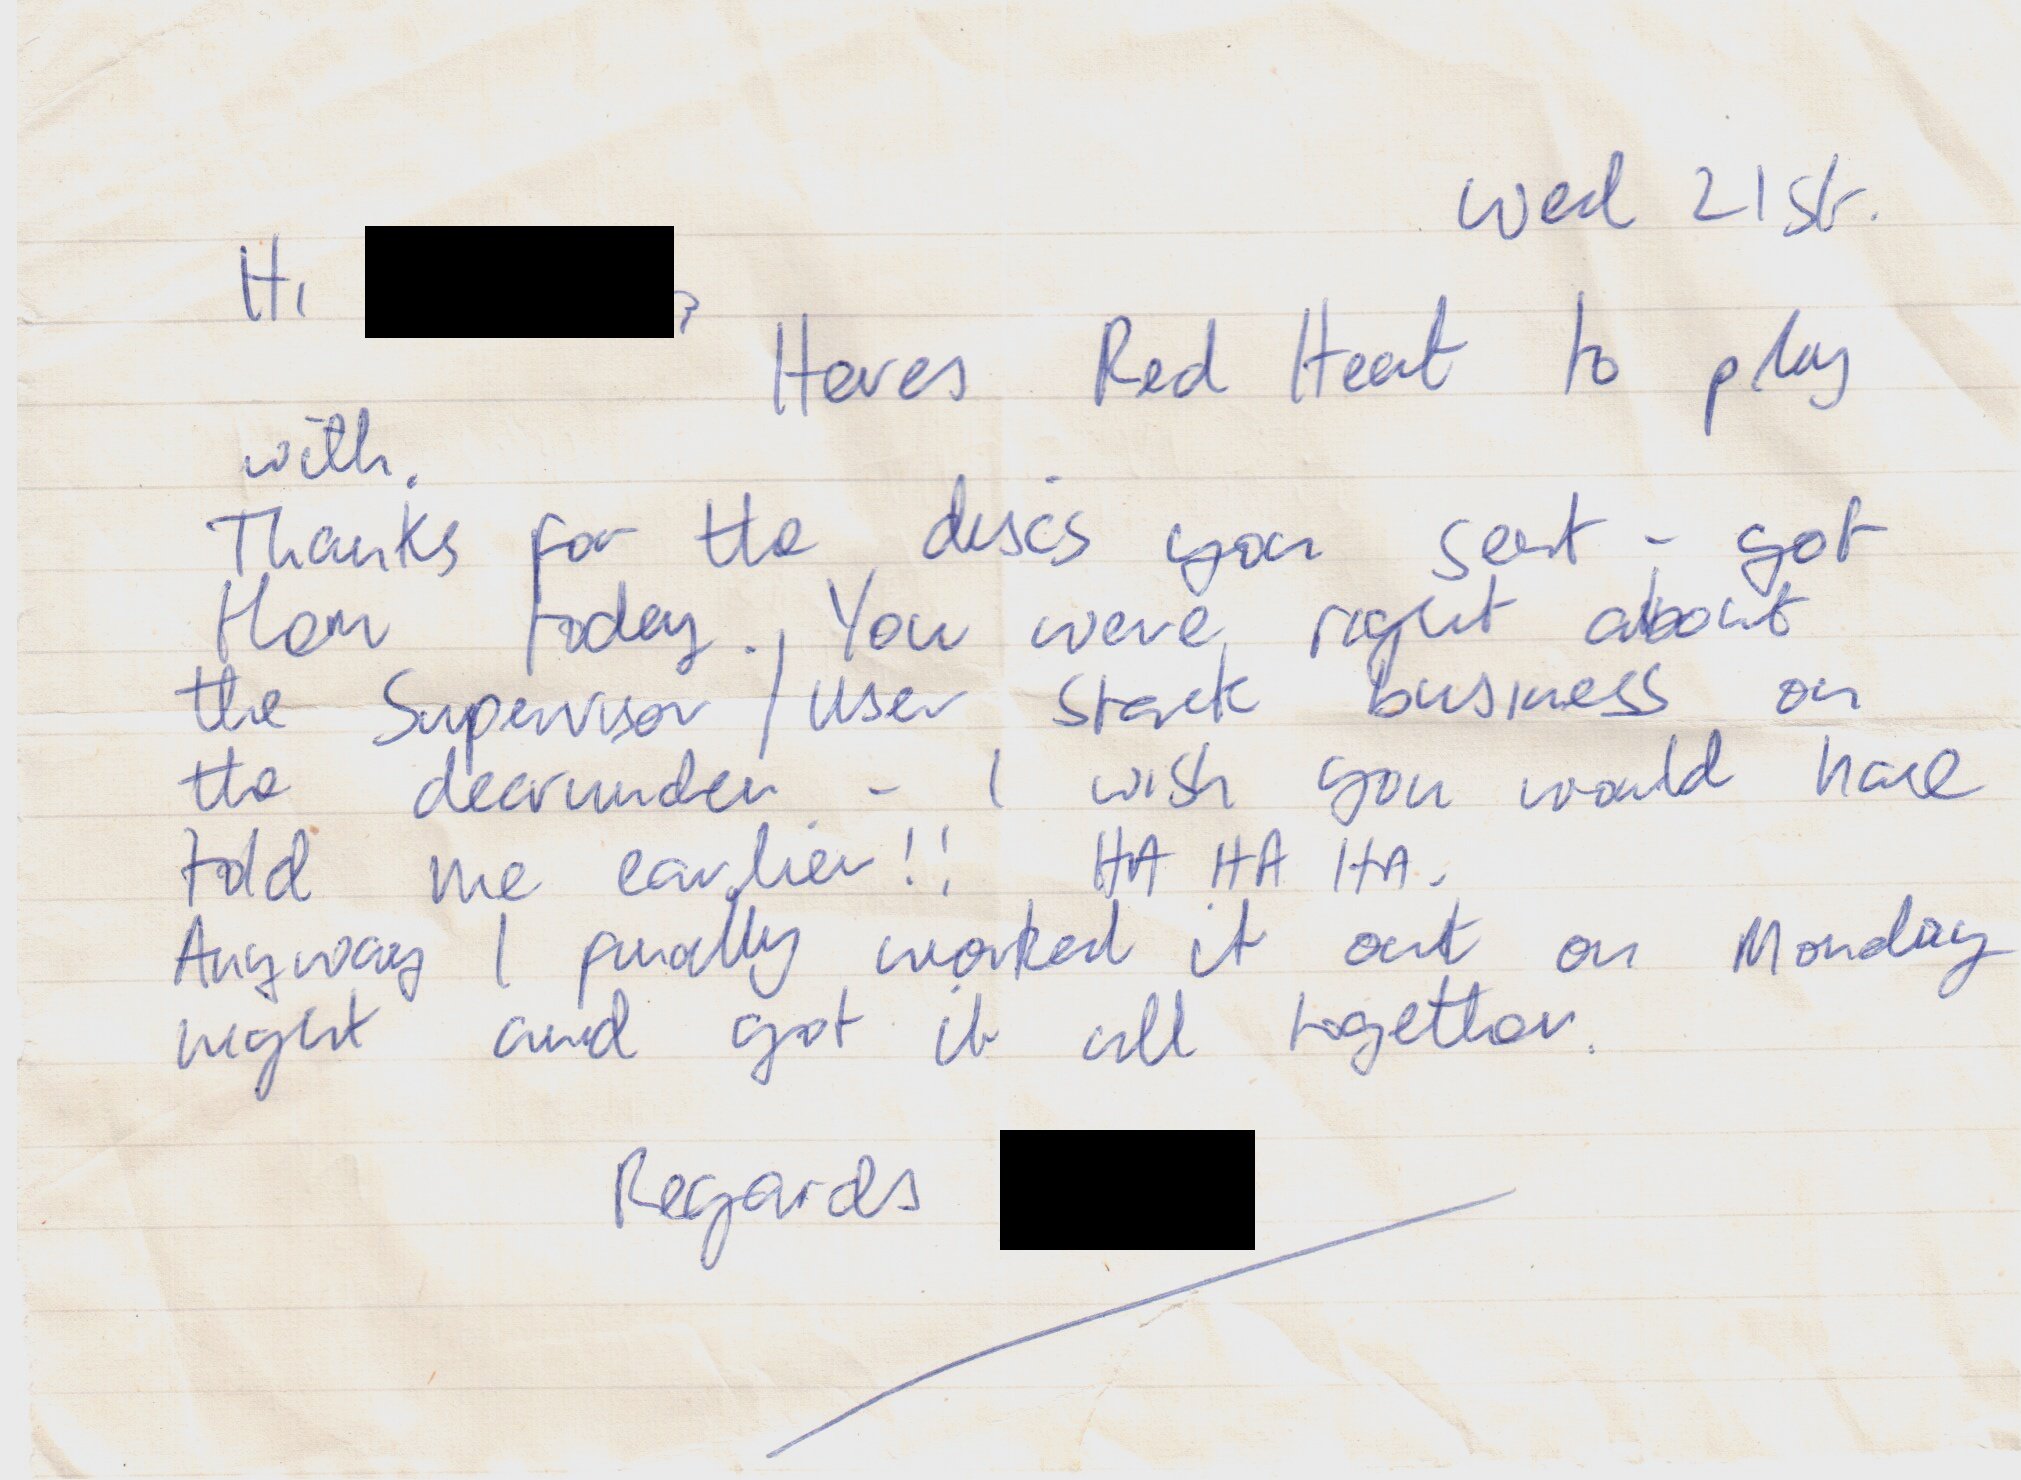 Wed 21st.
Hi ,
Heres Red Heat to play
with.
Thanks for the discs you sent - got
them today. You were right about
the Supervisor / User stack business on
the decruncher - I wish you would have
told me earlier!! HA HA HA.
Anyway I finally worked it out on Monday
night and got it all together.
Regards